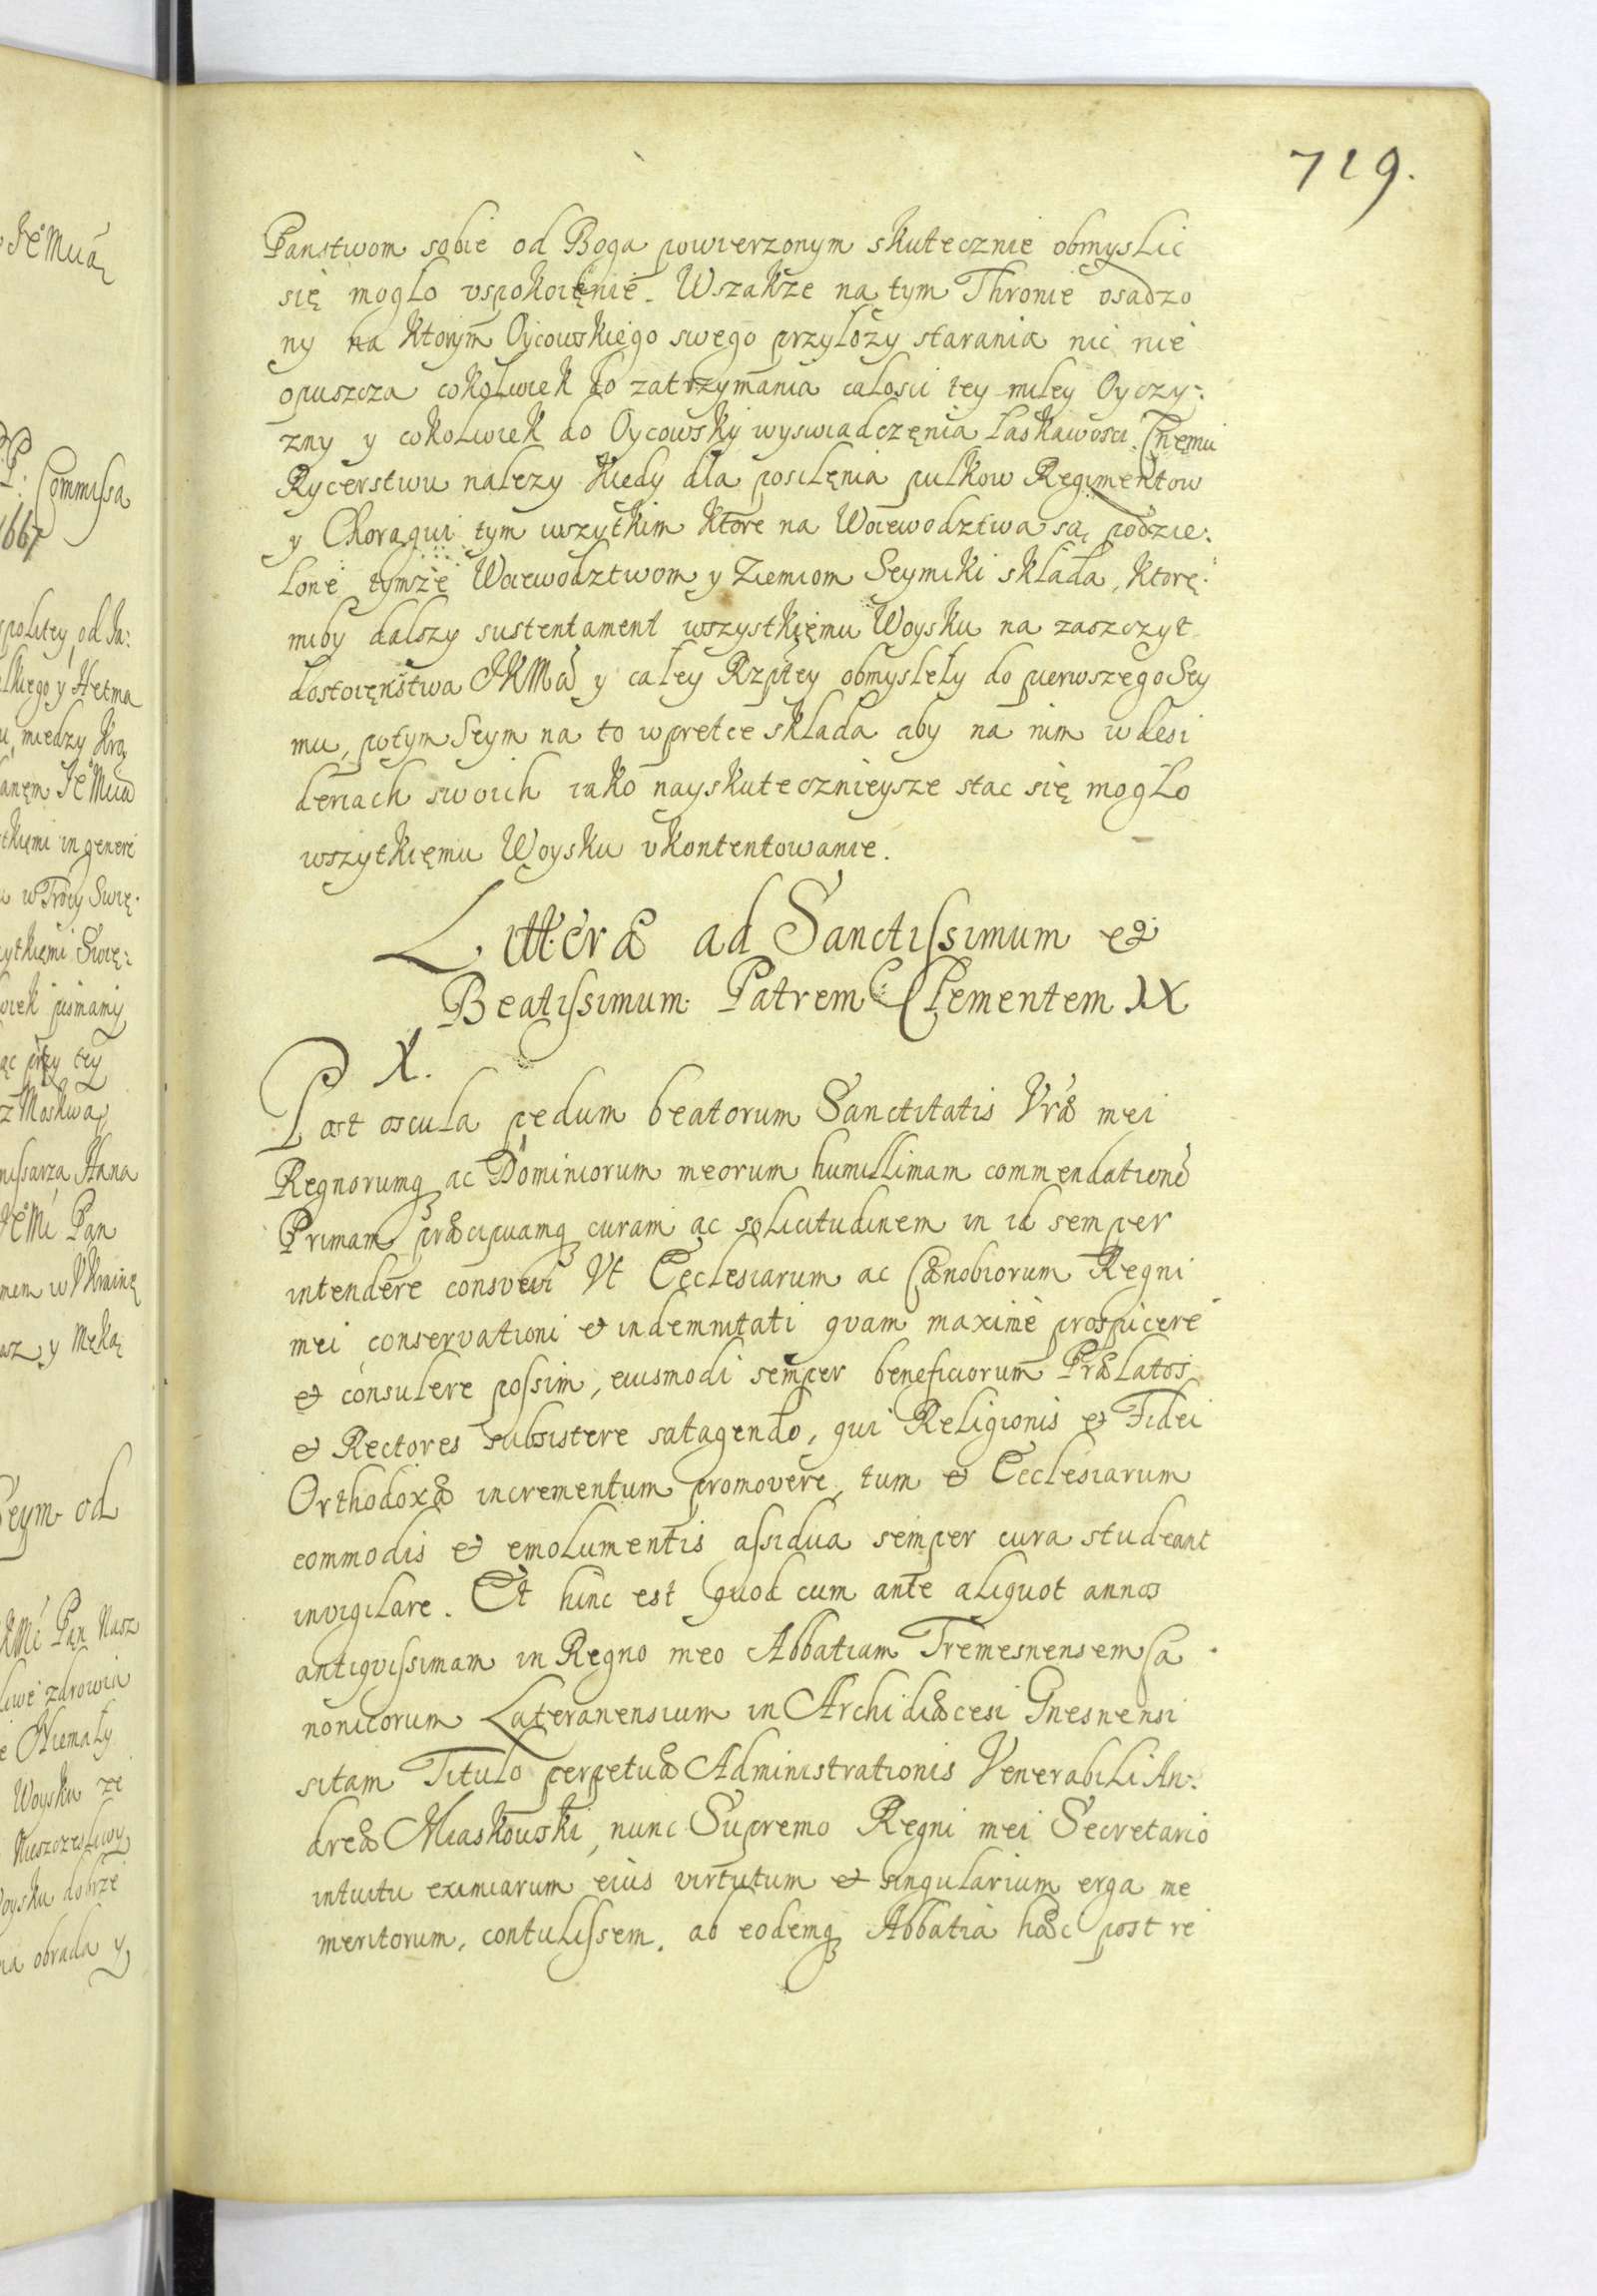 719.
Panstwom sobie od Boga powierzonym skutecznie obmyslic
się mogło vspokoięnie. Wszakże na tym Thronie osadzo
ny na ktorym Oycowskiego swego przyłoży starania nic nie
opuszcza cokolwiek do zatrzymania całosci tey miley Oyczy:
zny y cokolwiek do Oycowsky wyswiadczęnia łaskawosci
Rycerstwu nalezy kiedy dla posilęnia pulkow Regimentow
y Choragwi tym wszytkim ktore na Woiewodztwa są podzie:
lone tymże Woiewodztwom y Ziemiom Seymiki składa, ktorę:
miby dalszy sustentament wszystkięmu Woysku na zaszczyt
dostoięnstwa JKMci y całey Rzptey obmyslely do pierwszego Sey
mu, potym Seym na to wpretce składa aby na nim w desi
deriach swoich iako nayskutecznieysze stac się mogło
wszytkięmu Woysku vkontentowanie.
Litteræ ad Sanctissimum et
Beatissimum Patrem Clementem IX
X.
Post oscula pedum beatorum Sanctitatis Vræ mei
Regnorumq ac Dominiorum meorum humillimam commendatione
Primam præcipuamq curam ac solicitudinem in id semper
intendere consvevi Vt Ecclesiarum ac Cænobiorum Regni
mei conservationi et indemnitati qvam maximè prospicere
et consulere possim, eiusmodi semper beneficiorum Prælatos
et Rectores subsistere satagendo, qui Religionis et Fidei
Orthodoxæ incrementum promovere, tum et Ecclesiarum
commodis et emolumentis assidua semper cura studeant
invigilare. Et hinc est quod cum ante aliquot annos
antiqvissimam in Regno meo Abbatiam Tremesnensem Ca
nonicorum Lateranensium in Archidiæcesi Gnesnensi
sitam Titulo perpetuæ Administrationis Venerabili An:
dreæ Miaskowski, nunc Supremo Regni mei Secretario
intuitu eximiarum eius virtutum et singularium erga me
meritorum, contulissem. ab eodemq Abbatia hæc post re